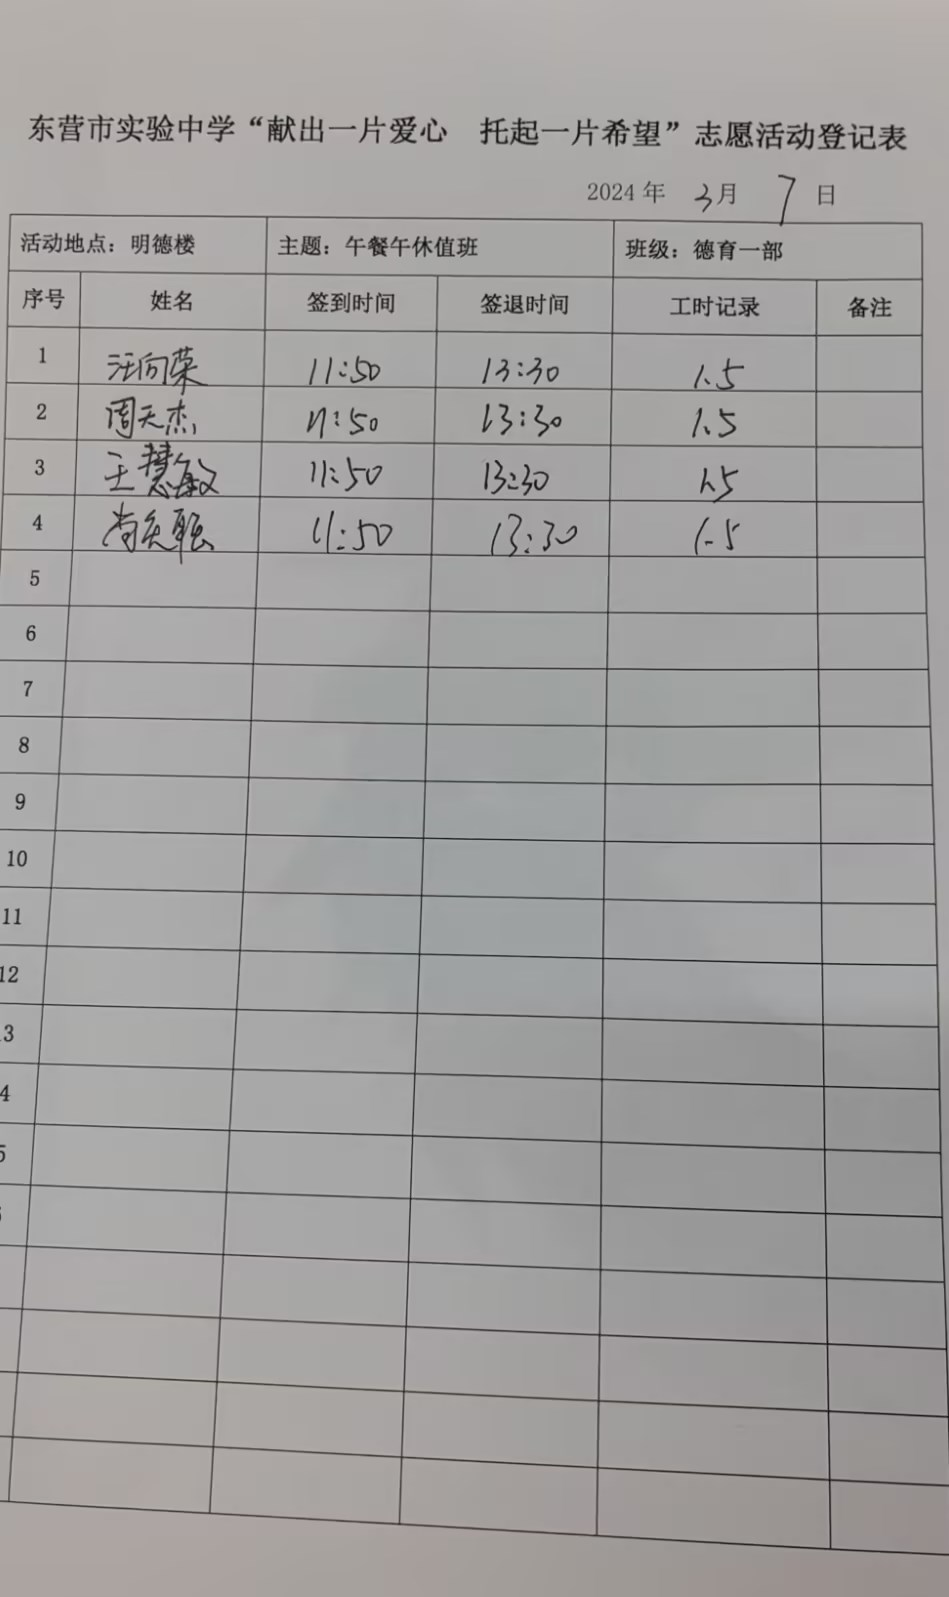 东营市实验中学“献出一片爱心 托起一片希望”志愿活动登记表
2024年 3月 7日
活动地点：明德楼 主题：午餐午休值班 班级：德育一部
序号 姓名 签到时间 签退时间 工时记录 备注
1 汪向荣 11:50 13:30 1.5
2 周天杰 11:50 13:30 1.5
3 王慧敏 11:50 13:30 1.5
4 11:50 13:30 1.5
5
6
7
8
9
10
11
12